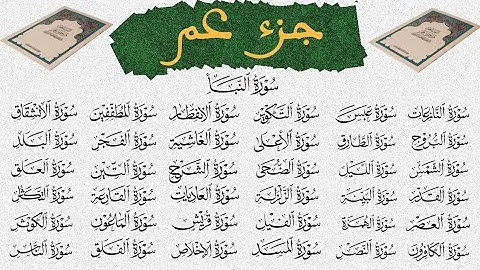 جزء عم
سُورَةُ النَّبَإِ
سُورَةُ النَّازِعَاتِ سُورَةُ عَبَسَ سُورَةُ التَّكْوِيرِ سُورَةُ الانفِطَارِ سُورَةُ المُطَفِّفِينَ سُورَةُ الانشِقَاقِ
سُورَةُ البُرُوجِ سُورَةُ الطَّارِقِ سُورَةُ الأَعْلَى سُورَةُ الغَاشِيَةِ سُورَةُ الفَجْرِ سُورَةُ البَلَدِ
سُورَةُ الشَّمْسِ سُورَةُ اللَّيْلِ سُورَةُ الضُّحَى سُورَةُ الشَّرْحِ سُورَةُ التِّينِ سُورَةُ العَلَقِ
سُورَةُ القَدْرِ سُورَةُ البَيِّنَةِ سُورَةُ الزَّلْزَلَةِ سُورَةُ العَادِيَاتِ سُورَةُ القَارِعَةِ سُورَةُ التَّكَاثُرِ
سُورَةُ العَصْرِ سُورَةُ الهُمَزَةِ سُورَةُ الفِيلِ سُورَةُ قُرَيْشٍ سُورَةُ المَاعُونِ سُورَةُ الكَوْثَرِ
سُورَةُ الكَافِرُونَ سُورَةُ النَّصْرِ سُورَةُ المَسَدِ سُورَةُ الإِخْلَاصِ سُورَةُ الفَلَقِ سُورَةُ النَّاسِ